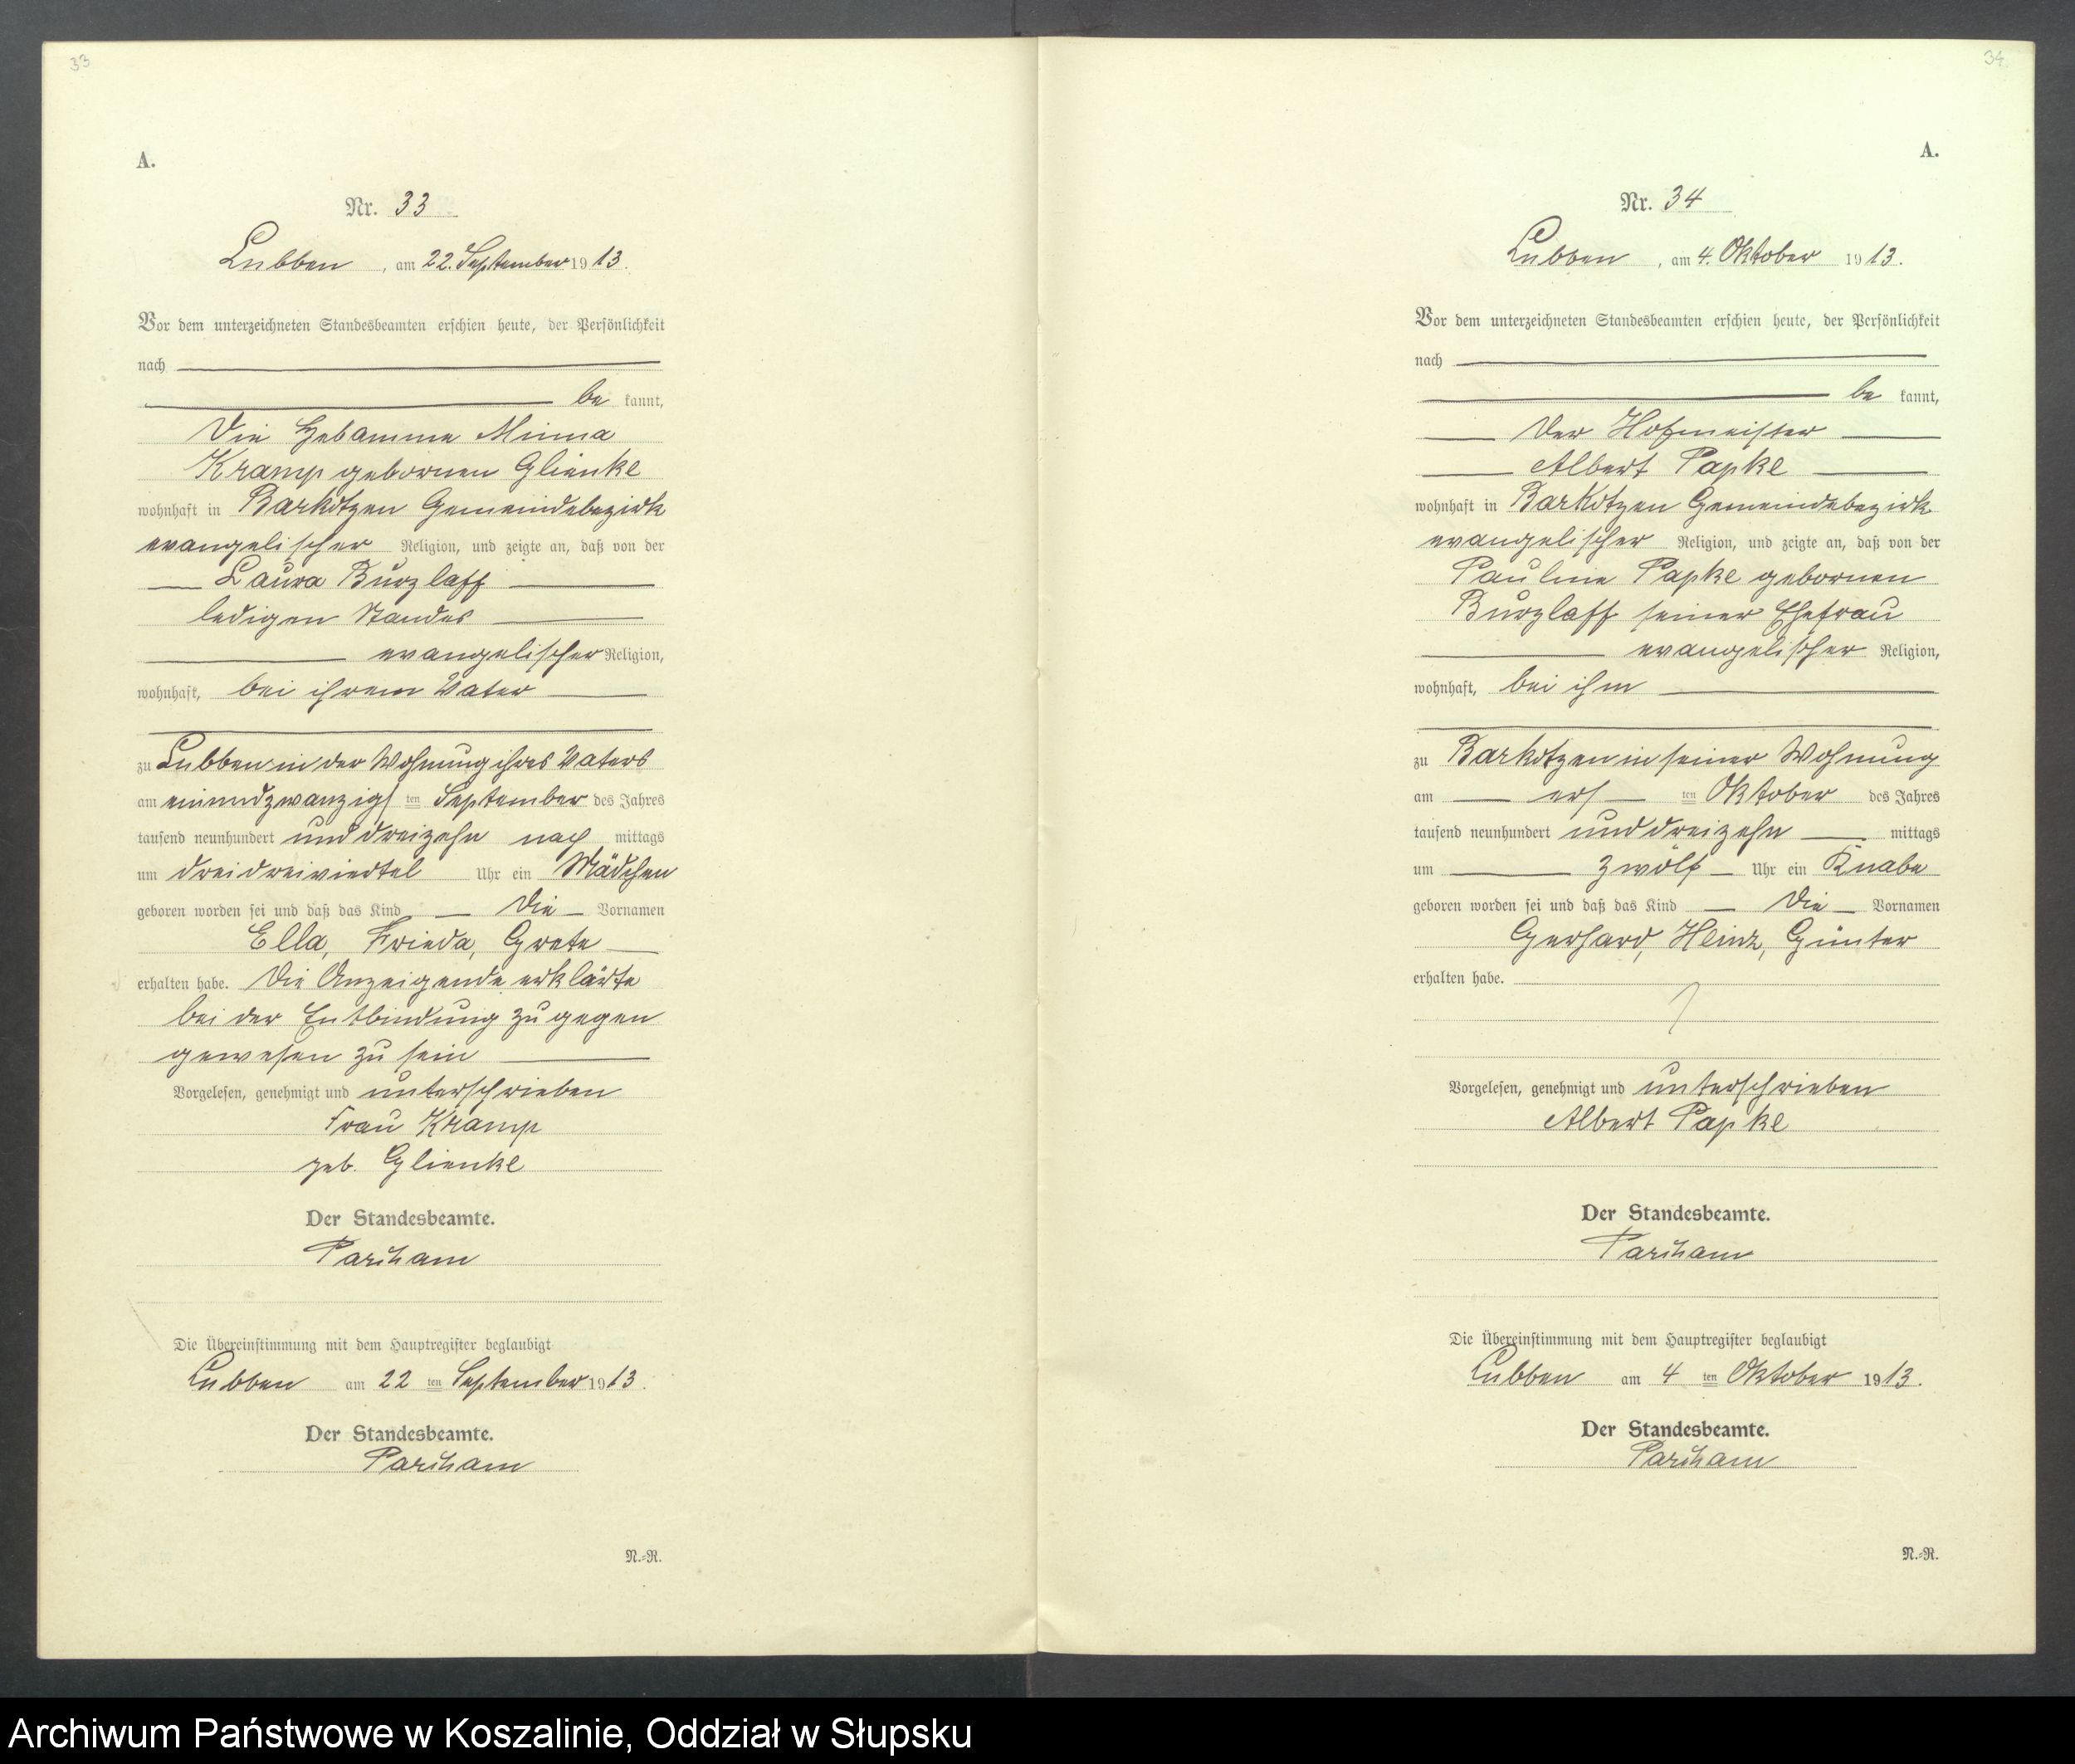 33
A.
Nr. 33
Lubben, am 22. September 1913.
Vor dem unterzeichneten Standesbeamten erschien heute, der Persönlichkeit
nach
be kannt,
Die Hebamme Minna
Kramp gebornen Glienke
wohnhaft in Barkotzen Gemeindebezirk
evangelischer Religion, und zeigte an, daß von der
Laura Burzlaff
ledigen Standes
evangelischer Religion,
wohnhaft, bei ihrem Vater
zu Lubben in der Wohnung ihres Vaters
am einundzwanzigsten September des Jahres
tausend neunhundert und dreizehn nachmittags
um dreidreiviertel Uhr ein Mädchen
geboren worden sei und daß das Kind die Vornamen
Ella, Frieda, Grete
erhalten habe. Die Anzeigende erklärte
bei der Entbindung zugegen
gewesen zu sein
Vorgelesen, genehmigt und unterschrieben
Frau Kramp
geb. Glienke
Der Standesbeamte.
Die Übereinstimmung mit dem Hauptregister beglaubigt
Lubben am 22 ten September 1913.
Der Standesbeamte.
N.-R.
34
A.
Nr. 34
Lubben, am 4. Oktober 1913.
Vor dem unterzeichneten Standesbeamten erschien heute, der Persönlichkeit
nach
be kannt,
Der Hofmeister
Albert Papke
wohnhaft in Barkotzen Gemeindebezirk
evangelischer Religion, und zeigte an, daß von der
Pauline Papke gebornen
Burzlaff seiner Ehefrau
evangelischer Religion,
wohnhaft, bei ihm
zu Barkotzen in seiner Wohnung
am ersten Oktober des Jahres
tausend neunhundert und dreizehn mittags
um zwölf Uhr ein Knabe
geboren worden sei und daß das Kind die Vornamen
Gerhard, Heinz, Günter
erhalten habe.
Vorgelesen, genehmigt und unterschrieben
Albert Papke
Der Standesbeamte.
Die Übereinstimmung mit dem Hauptregister beglaubigt
Lubben am 4 ten Oktober 1913.
Der Standesbeamte.
N.-R.
Archiwum Państwowe w Koszalinie, Oddział w Słupsku